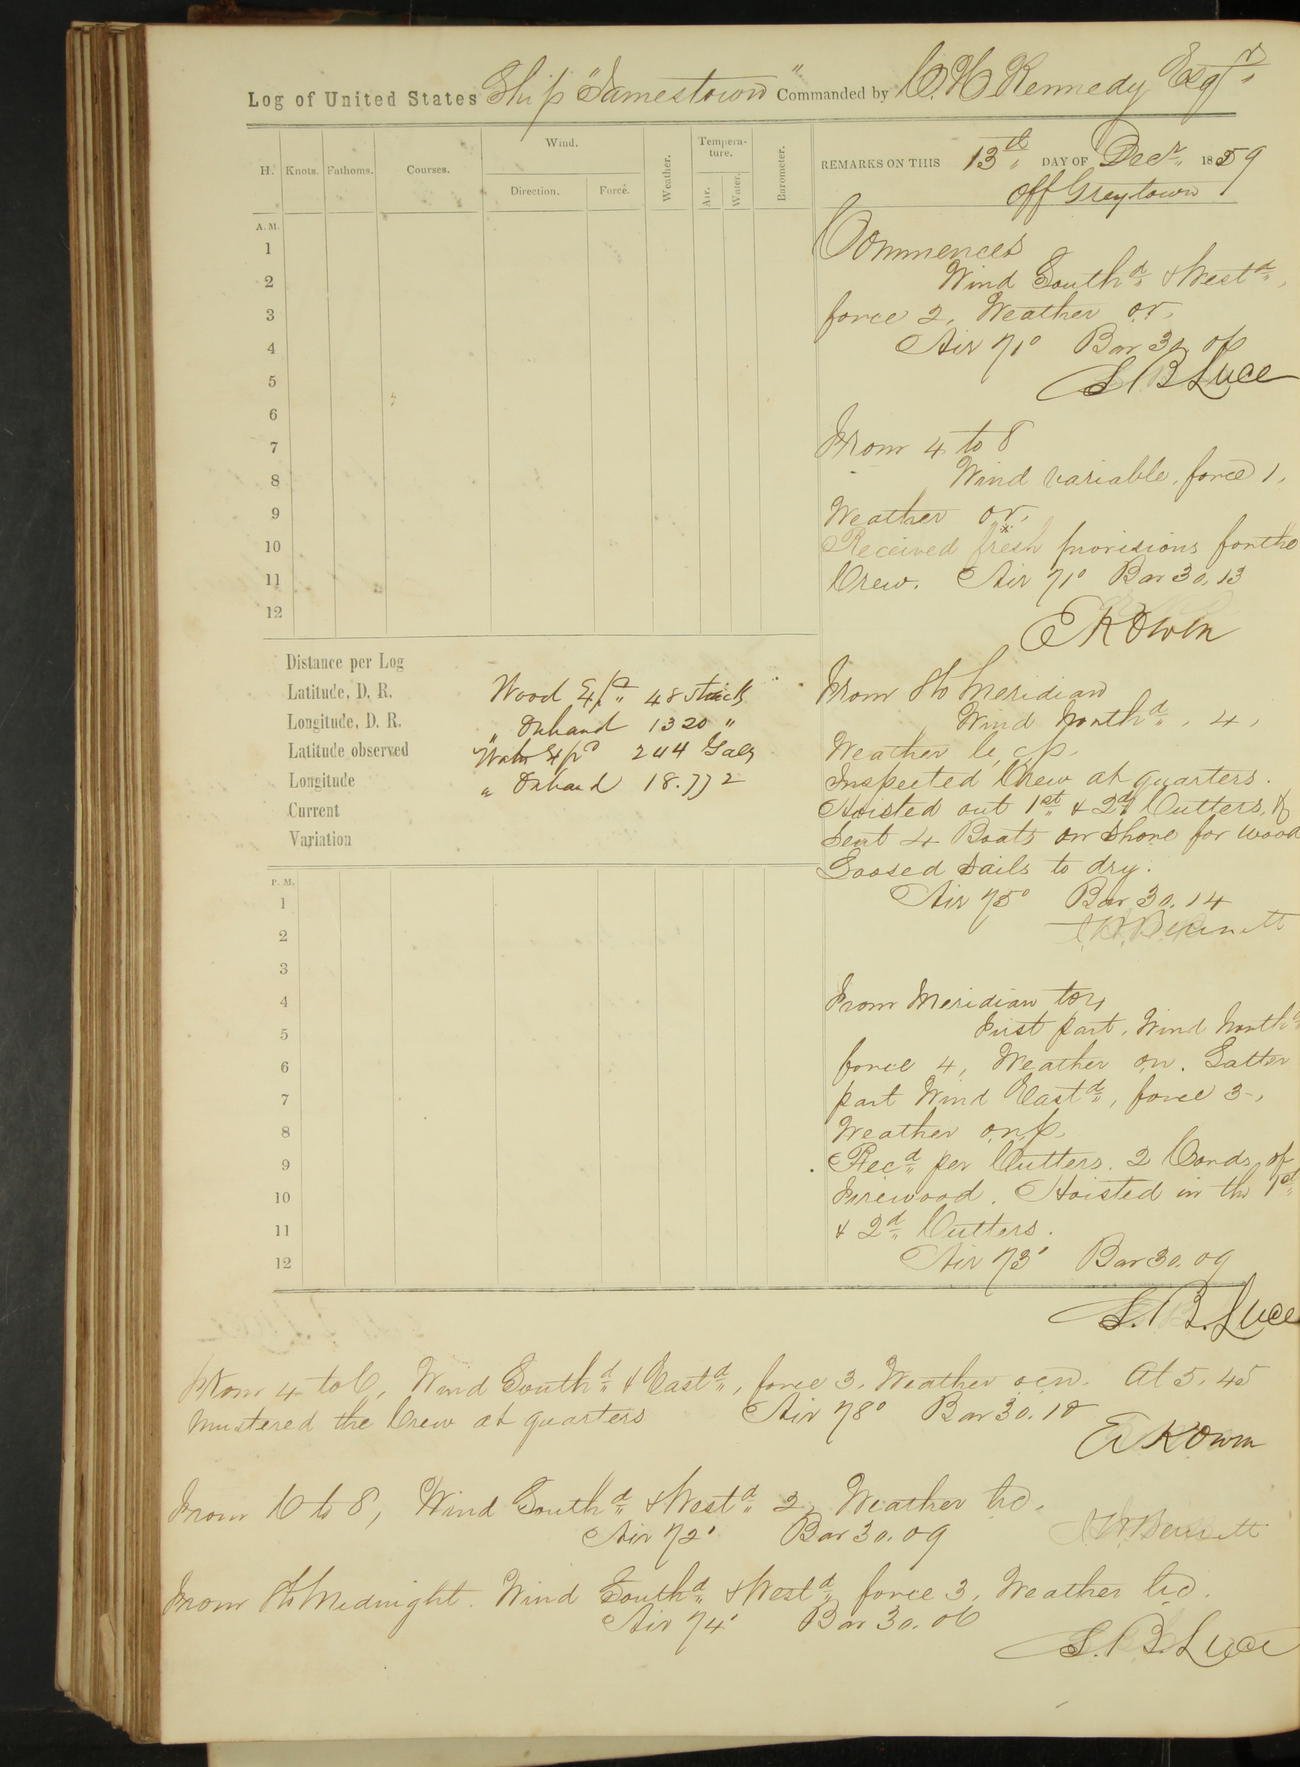 Log of United States Ship "Jamestown" Commanded by C. H. Kennedy Esqr
H. Knots. Fathoms. Courses. Wind. Direction. Force. Weather. Tempera-ture. Air. Water. Barometer.
REMARKS ON THIS 13th DAY OF Decr 1859
off Greytown
A. M.
1
2
3
4
5
6
7
8
9
10
11
12
Commences
Wind Southd & Westd,
force 2, Weather or.
Air 71° Bar 30.06
S B Luce
From 4 to 8
Wind variable, force 1,
Weather or.
Received fresh provisions for the
Crew. Air 71° Bar 30.13
E K Owen
Distance per Log
Latitude, D. R.
Longitude, D. R.
Latitude observed
Longitude
Current
Variation
Wood Expd 48 sticks
" Onhand 1320 "
Water Expd 244 Gals
" Onhand 18.772
From 8 to Meridian
Wind Northd, 4,
Weather b.c.p.
Inspected Crew at quarters.
Hoisted out 1st & 2d Cutters, &
sent 4 Boats on shore for wood
Loosed sails to dry.
Air 75° Bar 30.14
J. W. Bennett
P. M.
1
2
3
4
5
6
7
8
9
10
11
12
From Meridian to 4
First part, Wind Northd
force 4, Weather on. Latter
part Wind Eastd, force 3,
Weather o.n.p.
Recd per Cutters. 2 Cords of
Firewood. Hoisted in the 1st
& 2d Cutters.
Air 73° Bar 30.09
S. B. Luce
From 4 to 6, Wind Southd & Eastd, force 3, Weather ocn. At 5.45
mustered the Crew at quarters Air 78° Bar 30.10
E K Owen
From 6 to 8, Wind Southd & Westd 2, Weather bc.
Air 72° Bar 30.09 J W Bennett
From 8 to Midnight. Wind Southd & Westd force 3, Weather bc.
Air 74° Bar 30.06
S. B. Luce